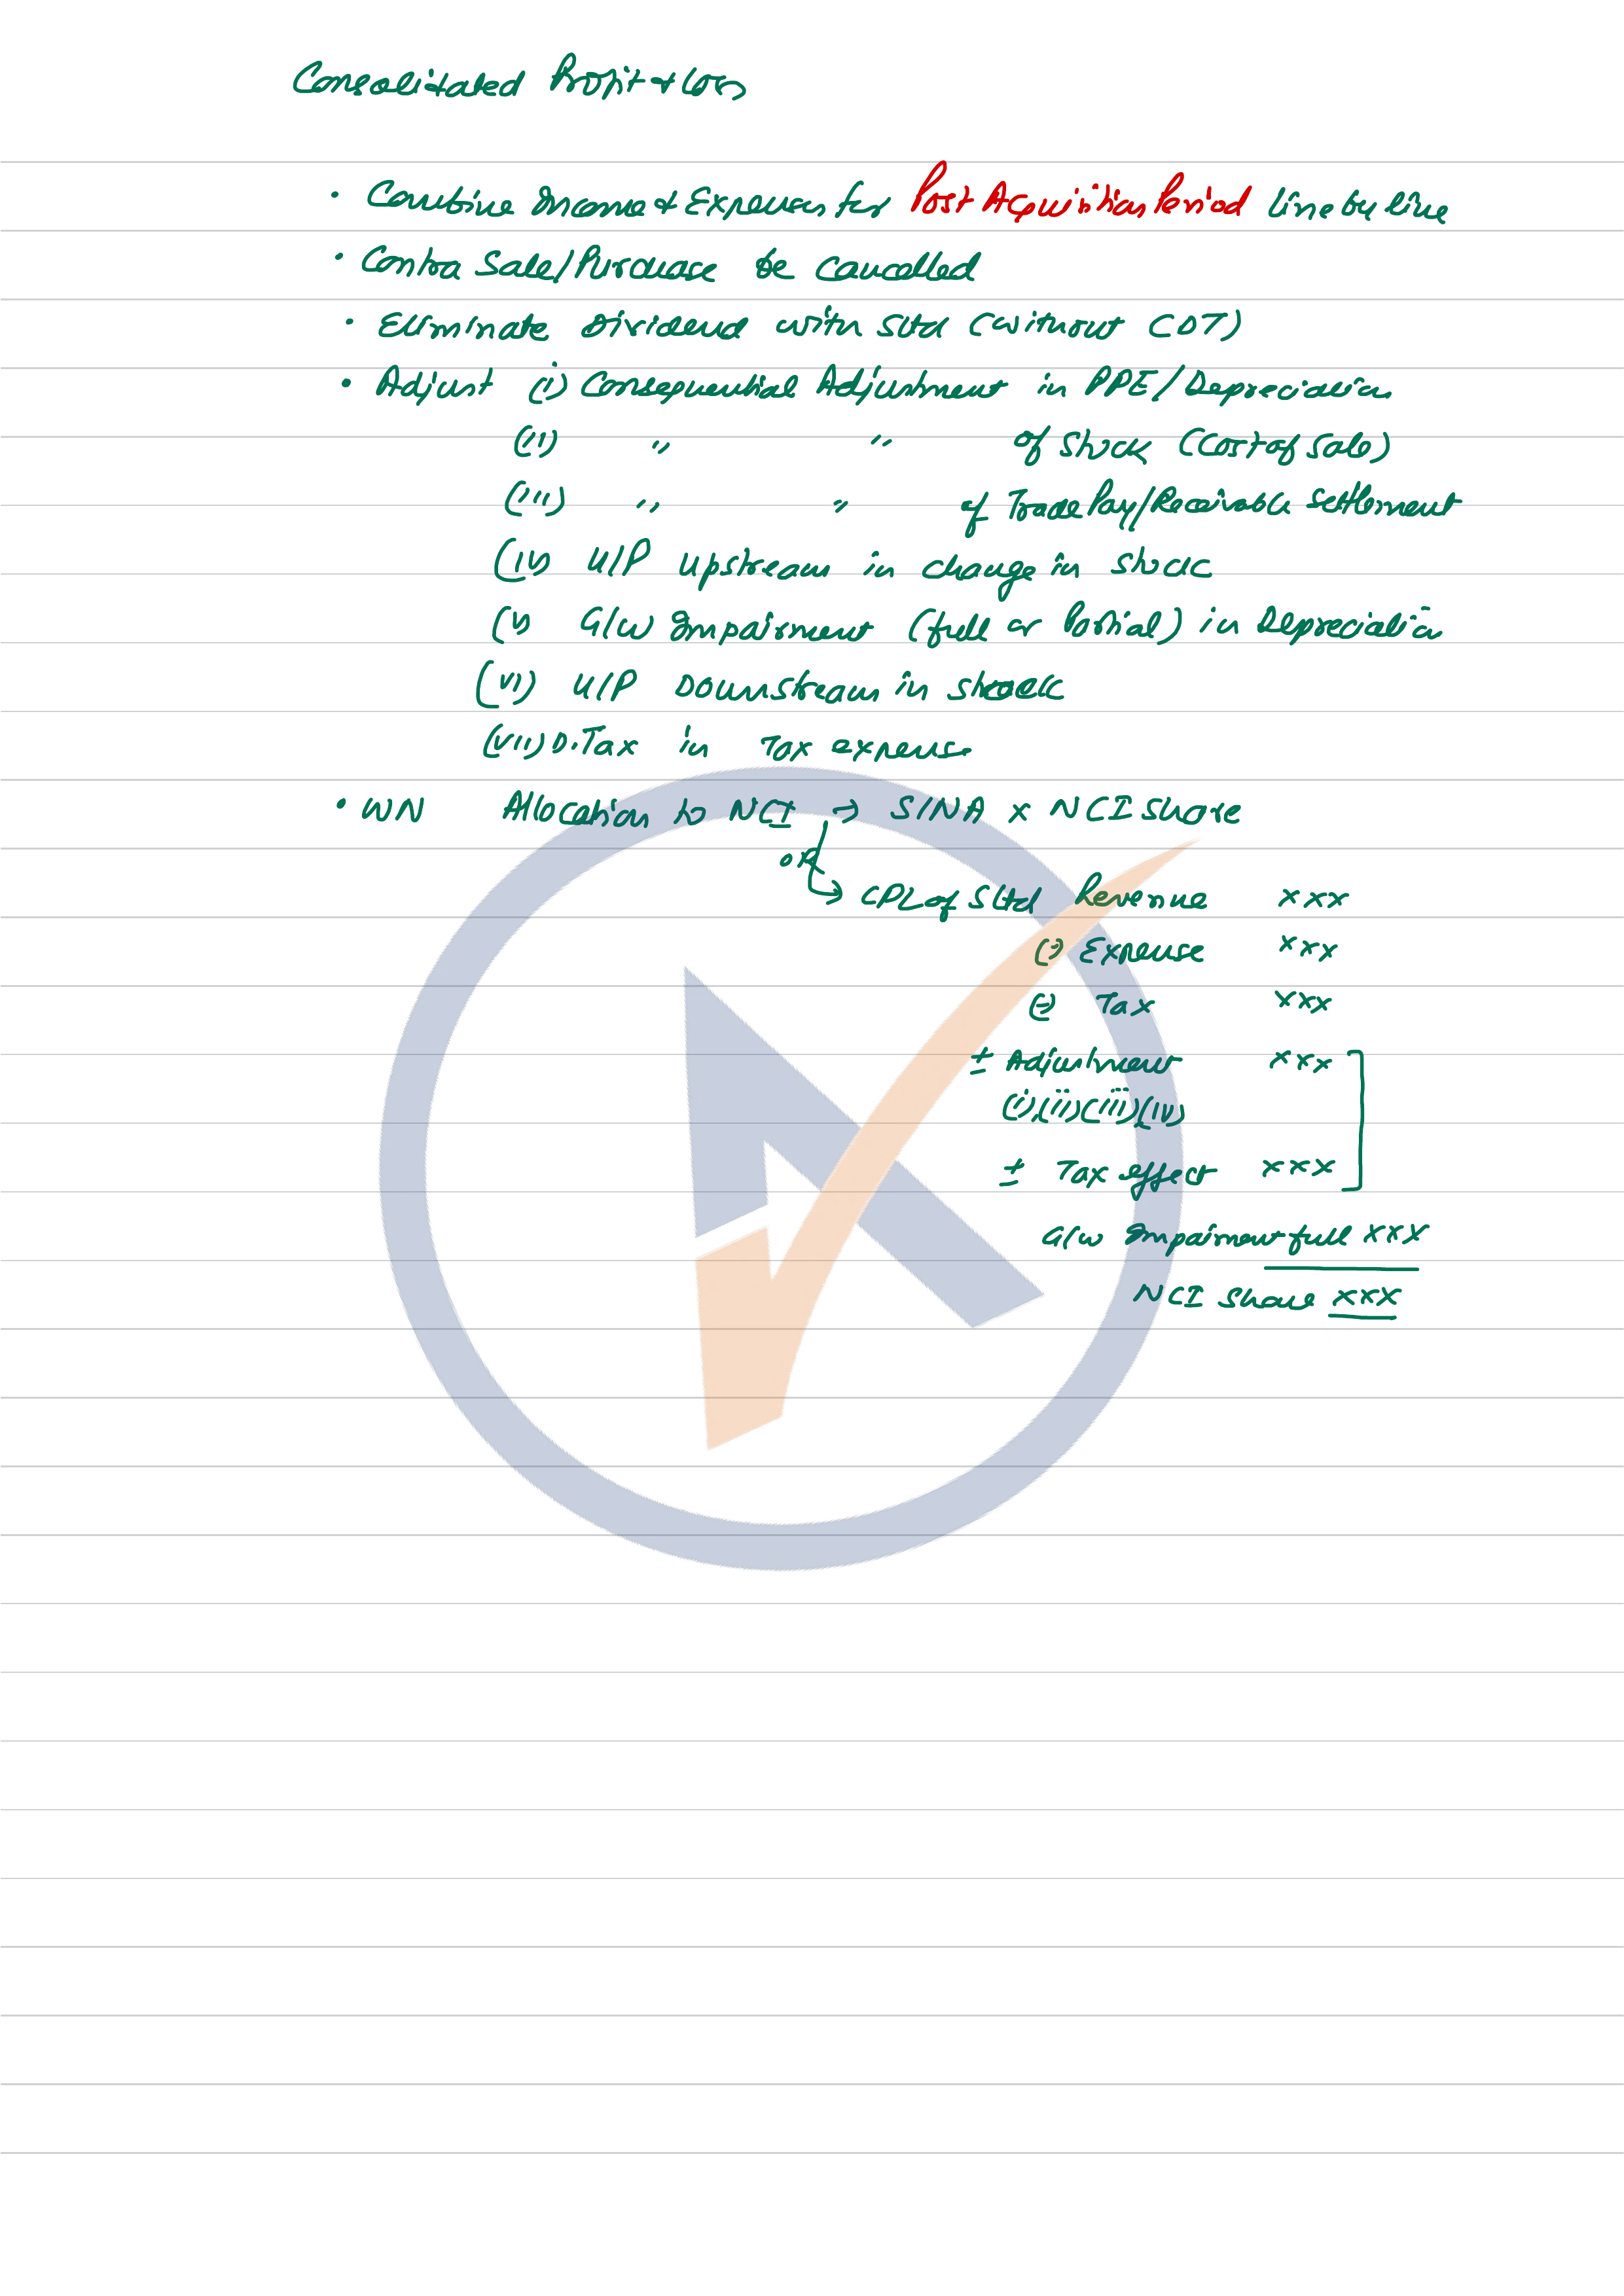 Consolidated Profit & Loss
• Combine Income & Expenses for Post Acquisition Period line by line
• Contra Sale/Purchase be cancelled
• Eliminate Dividend with SLtd (without CDT)
• Adjust (i) Consequential Adjustment in PPE/Depreciation
(ii) " " of Stock (Cost of Sale)
(iii) " " of Trade Pay/Receivable Settlement
(iv) U/P Upstream in change in Stock
(v) G/W Impairment (full or Partial) in Depreciation
(vi) U/P Downstream in Stock
(vii) D.Tax in Tax expense
• WN Allocation to NCI → SINA x NCI Share
OR
→ CPL of SLtd Revenue xxx
(-) Expense xxx
(-) Tax xxx
± Adjustment xxx
(i),(ii)(iii)(iv)
± Tax effect xxx
G/W Impairment full xxx
NCI Share xxx